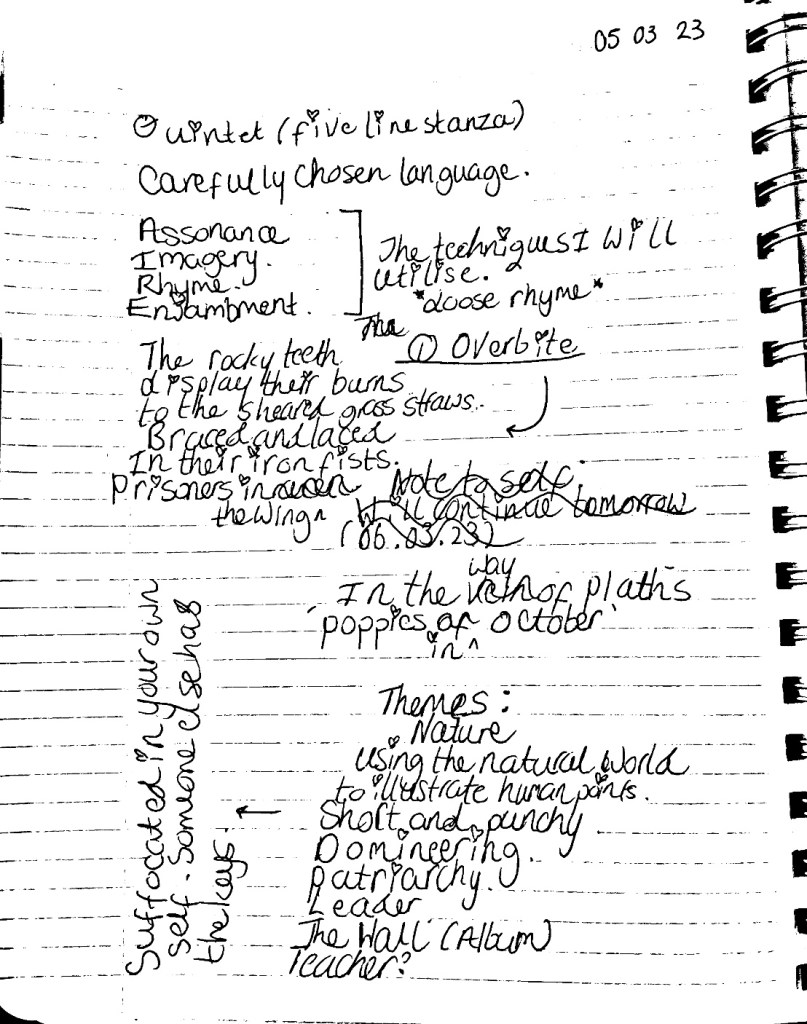 05 03 23
Quintet (five line stanza)
Carefully chosen language.
Assonance
Imagery.
Rhyme.
Enjambment.
The techniques I will
utilise.
*loose rhyme*
The
① Overbite
The rocky teeth
display their burns
to the sheared grass straws.
Braced and laced
In their iron fists.
Prisoners in
the wing
Note to self:
Will continue tomorrow
(06.03.23)
way
'In the vein of Plath's
poppies of October'
in ^
Themes:
Nature
using the natural world
to illustrate human
Short and punchy
Domineering.
Patriarchy.
Leader
The Wall (Album)
Teacher?
Suffocated in your own
self. Someone else has
the keys.